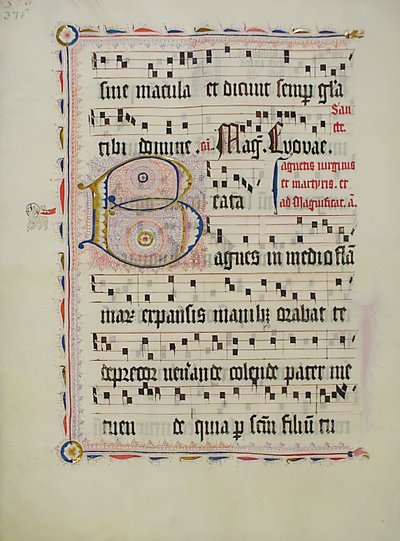 sine macula et dicunt semꝑ gl̃a
San
cte
tibi domine Mag̃. Evovae.
agnetis virginis
et martyris. et
ad Magnificat. ã.
Beata
agnes in medio flã
marꝝ expansis manibꝫ orabat te
deprecor venerande colende pater me
tuen de quia ꝑ scm̃ filiũ tu